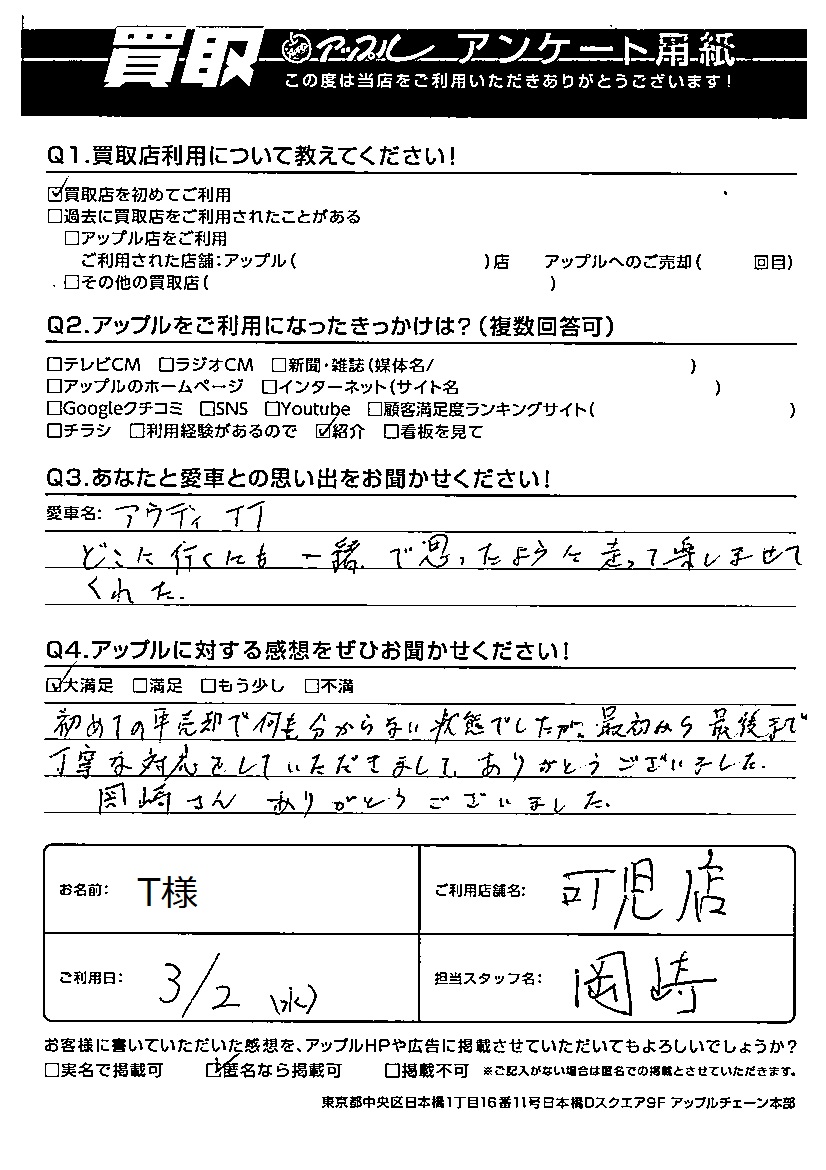 買取 アップル アンケート用紙
この度は当店をご利用いただきありがとうございます!
Q1.買取店利用について教えてください!
☑買取店を初めてご利用
□過去に買取店をご利用されたことがある
□アップル店をご利用
ご利用された店舗:アップル( )店 アップルへのご売却( 回目)
□その他の買取店( )
Q2.アップルをご利用になったきっかけは?(複数回答可)
□テレビCM □ラジオCM □新聞・雑誌(媒体名/ )
□アップルのホームページ □インターネット(サイト名 )
□Googleクチコミ □SNS □Youtube □顧客満足度ランキングサイト( )
□チラシ □利用経験があるので ☑紹介 □看板を見て
Q3.あなたと愛車との思い出をお聞かせください!
愛車名: アウディ TT
どこに行くにも一緒で思ったように走って楽しませて
くれた.
Q4.アップルに対する感想をぜひお聞かせください!
☑大満足 □満足 □もう少し □不満
初めての車売却で何も分からない状態でしたが、最初から最後まで
丁寧な対応をしていただきまして、ありがとうございました.
岡崎さん ありがとうございました.
お名前: T様 ご利用店舗名: 可児店
ご利用日: 3/2 (水) 担当スタッフ名: 岡崎
お客様に書いていただいた感想を、アップルHPや広告に掲載させていただいてもよろしいでしょうか?
□実名で掲載可 ☑匿名なら掲載可 □掲載不可 ※ご記入がない場合は匿名での掲載とさせていただきます。
東京都中央区日本橋1丁目16番11号日本橋Dスクエア9F アップルチェーン本部